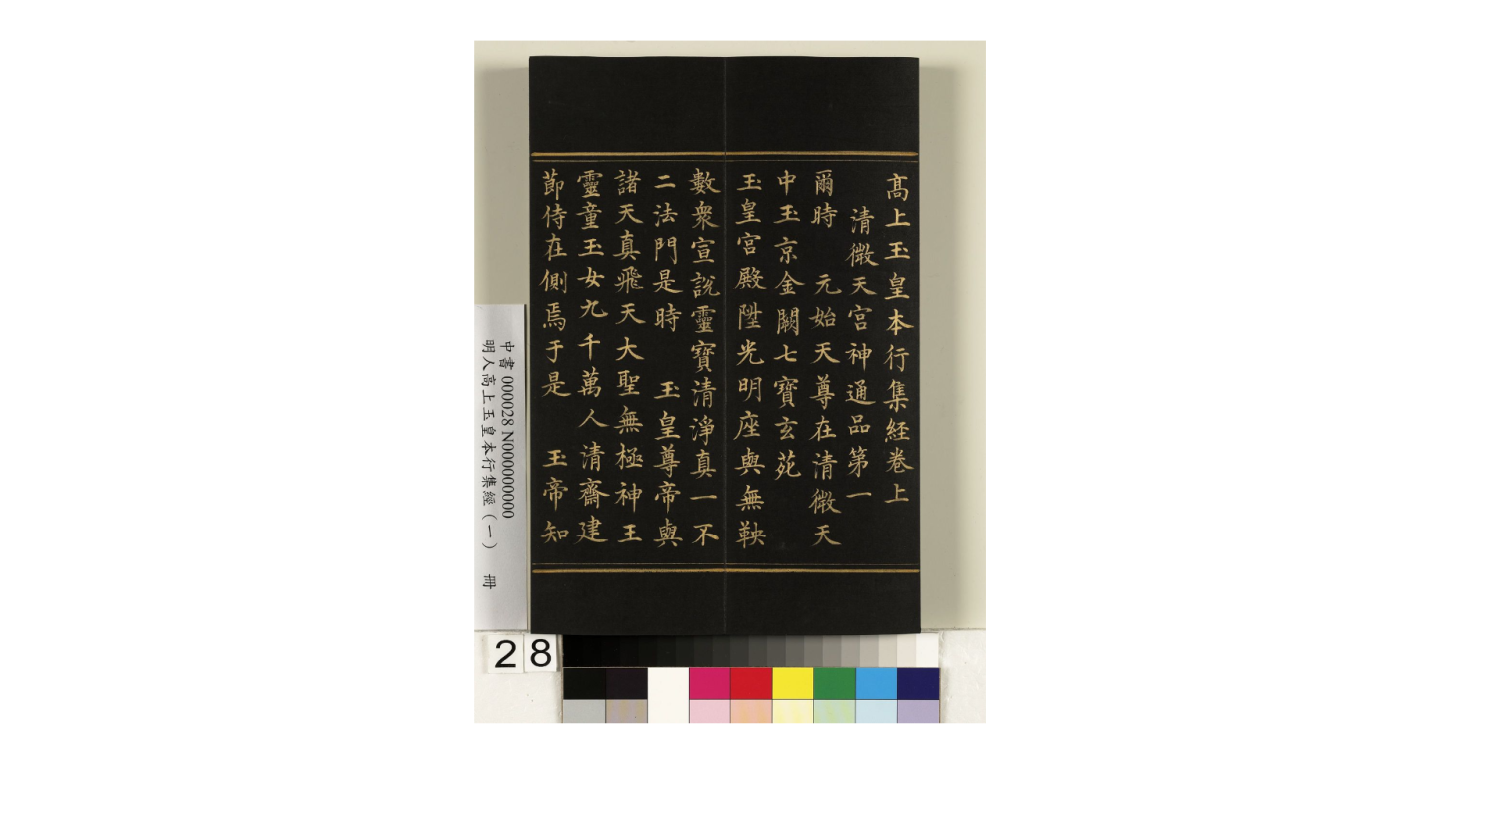 高上玉皇本行集経卷上
清微天宮神通品第一
爾時　元始天尊在清微天
中玉京金闕七寶玄苑
玉皇宮殿陞光明座與無鞅
數衆宣說靈寶清淨真一不
二法門是時　玉皇尊帝與
諸天真飛天大聖無極神王
靈童玉女九千萬人清齋建
節侍在側焉于是　玉帝知
中書 000028 N000000000
明人高上玉皇本行集經（一）　冊
28